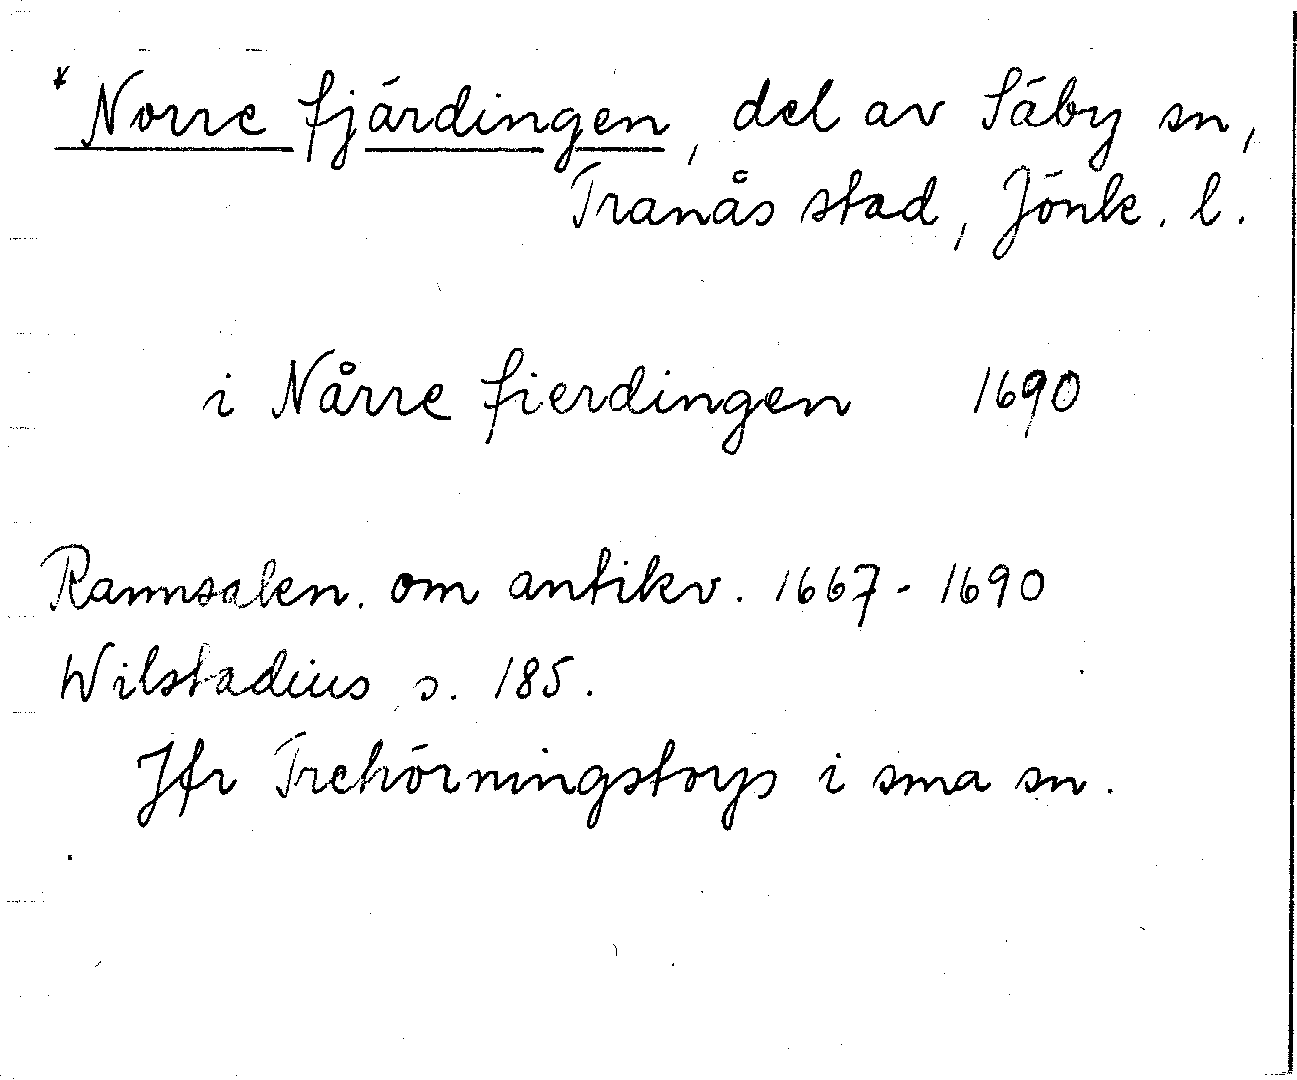 * Norre fjärdingen, del av Säby sn,
Tranås stad, Jönk. l.
i Nårre fierdingen 1690
Rannsaken. om antikv. 1667-1690
Wilstadius s. 185.
Jfr Trehörningstorp i sma sn.